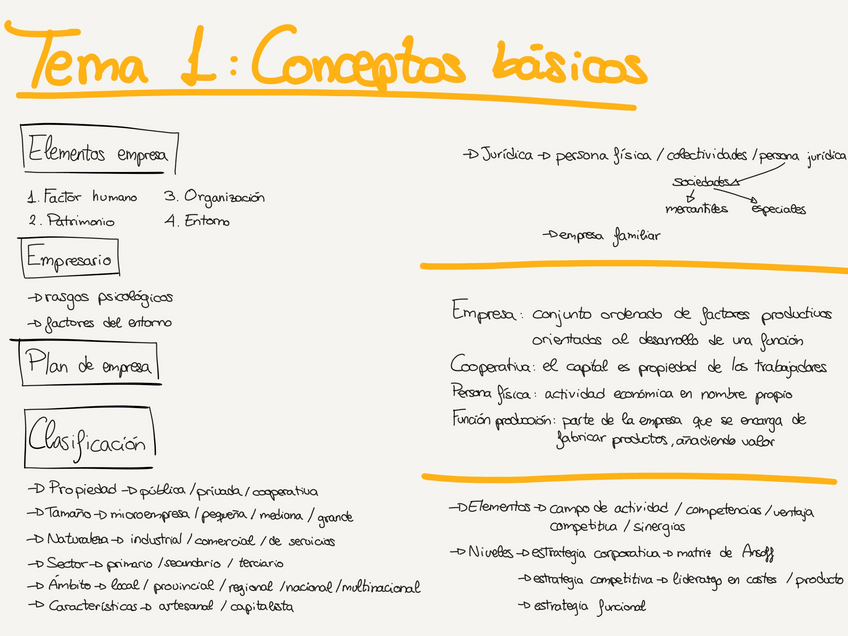 Tema 1: Conceptos básicos
Elementos empresa
1. Factor humano 3. Organización
2. Patrimonio 4. Entorno
Empresario
→ rasgos psicológicos
→ factores del entorno
Plan de empresa
Clasificación
→ Propiedad → pública / privada / cooperativa
→ Tamaño → microempresa / pequeña / mediana / grande
→ Naturaleza → industrial / comercial / de servicios
→ Sector → primario / secundario / terciario
→ Ámbito → local / provincial / regional / nacional / multinacional
→ Características → artesanal / capitalista
→ Jurídica → persona física / colectividades / persona jurídica
sociedades
mercantiles especiales
→ empresa familiar
Empresa: conjunto ordenado de factores productivos
orientados al desarrollo de una función
Cooperativa: el capital es propiedad de los trabajadores
Persona física: actividad económica en nombre propio
Función producción: parte de la empresa que se encarga de
fabricar productos, añadiendo valor
→ Elementos → campo de actividad / competencias / ventaja
competitiva / sinergias
→ Niveles → estrategia corporativa → matriz de Ansoff
→ estrategia competitiva → liderazgo en costes / producto
→ estrategia funcional